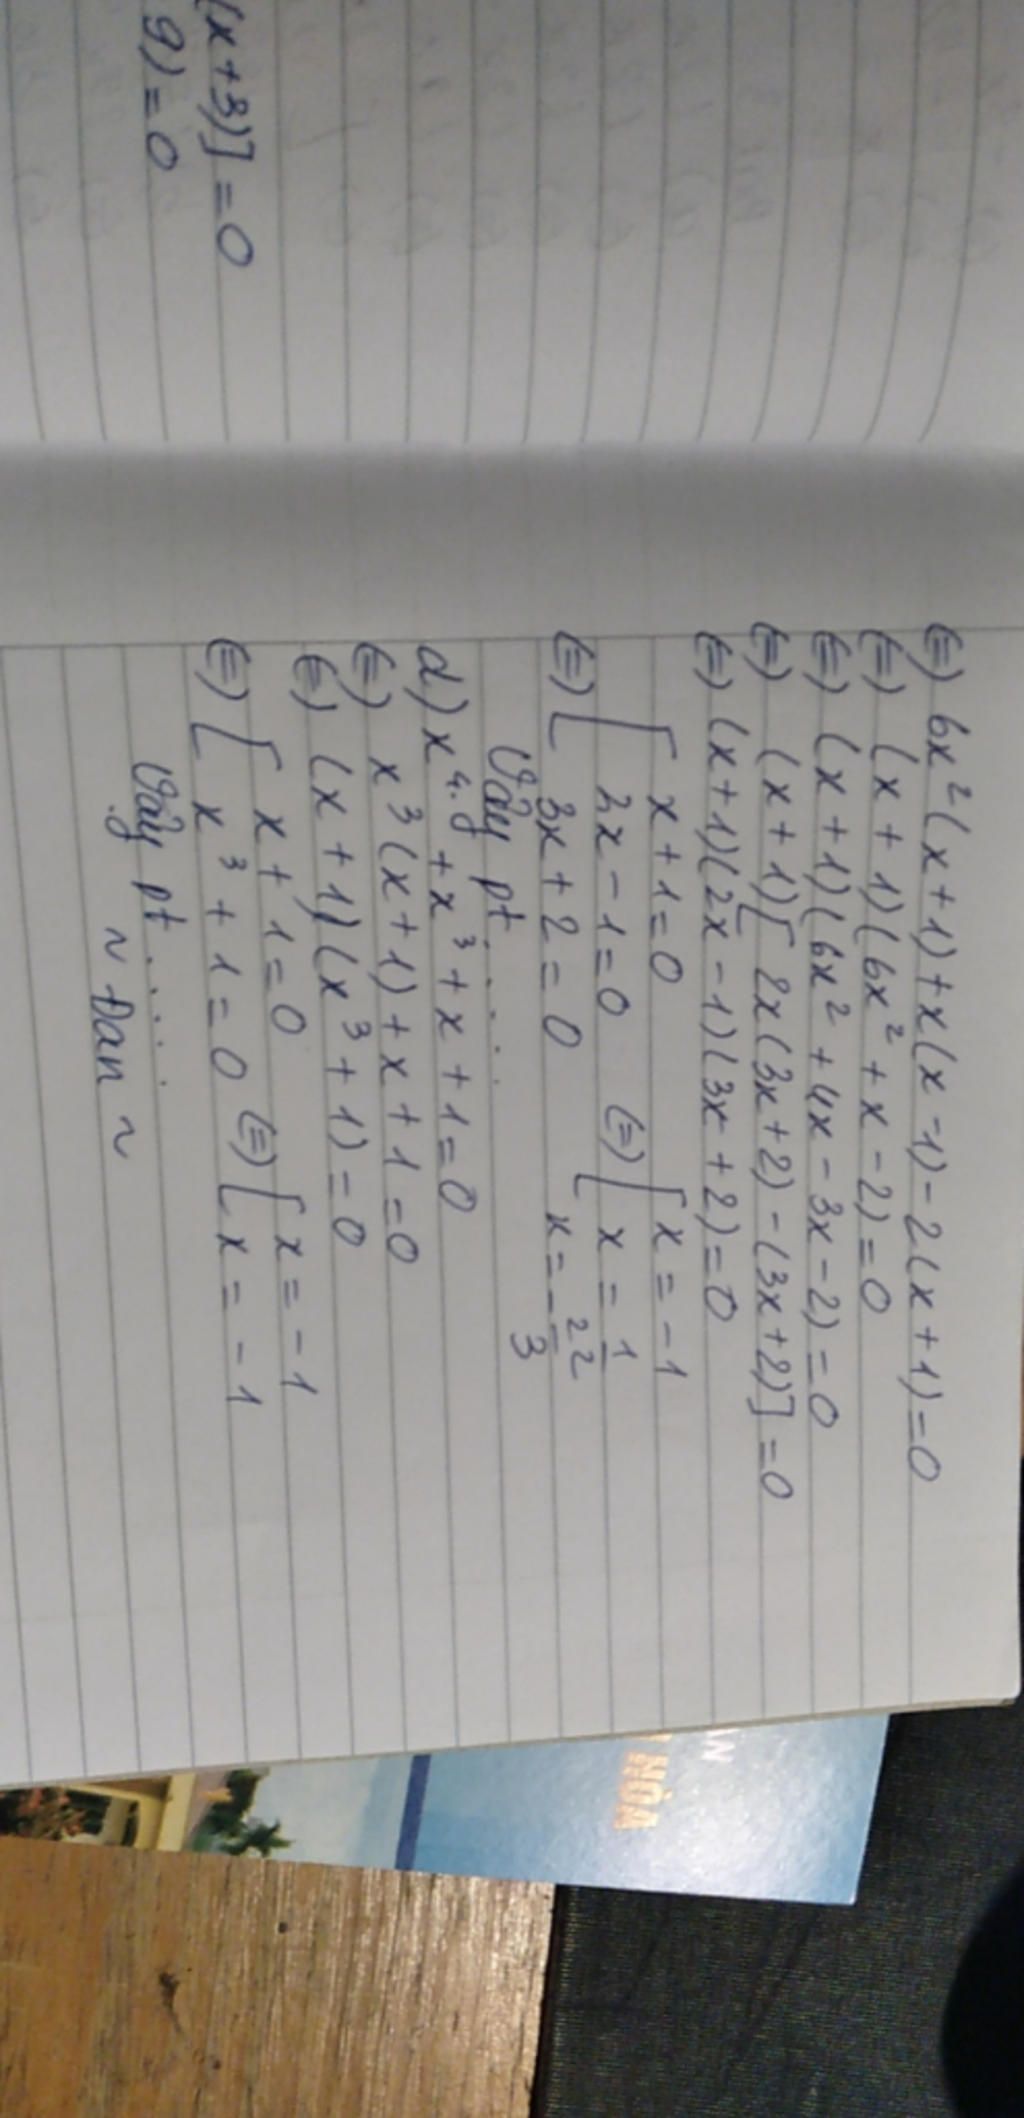 (x+3)] = 0
9) = 0
(=) 6x²(x+1)+x(x-1)-2(x+1)=0
(=) (x+1)(6x²+x-2)=0
(=) (x+1)(6x²+4x-3x-2)=0
(=) (x+1)[2x(3x+2)-(3x+2)]=0
(=) (x+1)(2x-1)(3x+2)=0
x+1=0 x=-1
(=) [ 2x-1=0 (=) [ x=1/2
3x+2=0 x=-2/3
Vậy pt.....
d) x⁴+x³+x+1=0
(=) x³(x+1)+x+1=0
(=) (x+1)(x³+1)=0
(=) [ x+1=0 (=) [ x=-1
x³+1=0 x=-1
Vậy pt.....
~ Đan ~
N
NÓA